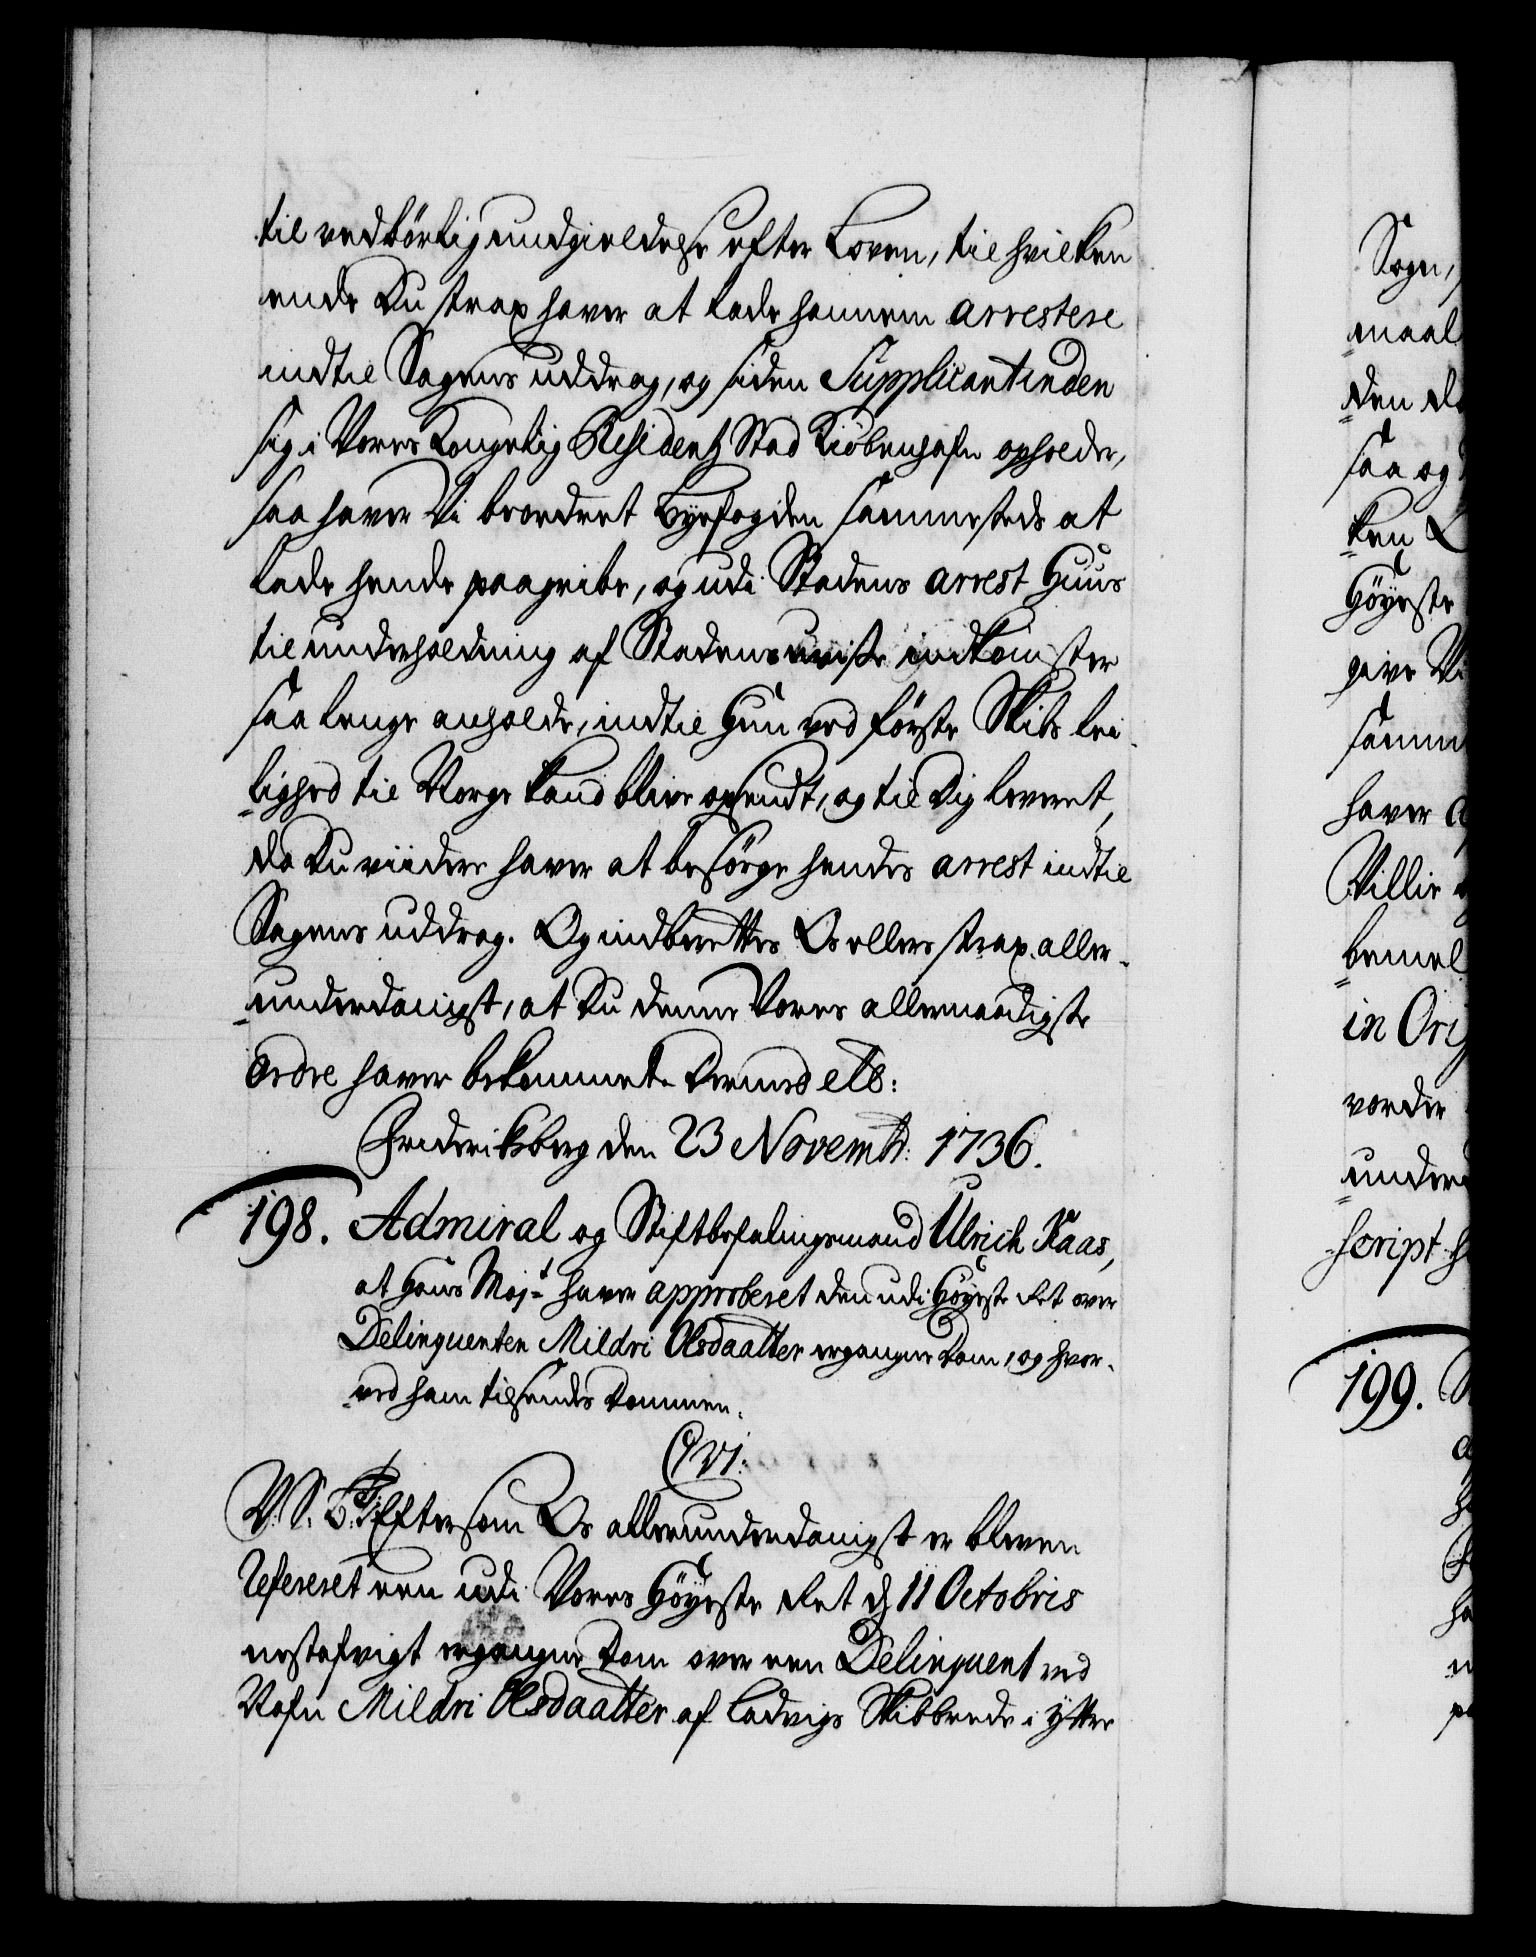 til vedbörlig undgieldelse efter Loven, til hvilken
ende Du strax haver at lade hannem arrestere
indtil Sagens uddrag, og siden Supplicantinden
sig i Vores Kongelig Residentz Stad Kiöbenhafn opholder,
saa haver Vi beordret Byefogden sammesteds at
lade hende paagribe, og udi Stadens arrest Huus
til underholdning af Stadens uvisse indkomster
saa lenge anholde, indtil Hun ved förste Skibs lei-
lighed til Norge kand blive opsendt, og til Dig leveret,
da Du viidere haver at besörge hendes arrest indtil
Sagens uddrag. Og indberettes Os ellers strax aller-
underdanigst, at Du denne Vores allernaadigste
ordre haver bekommet. Dermed etc:
Friderichsberg den 23 Novembr: 1736.
198. Admiral og Stiftbefalingsmand Ulrich Kaas,
at Hans Majt haver approberet den udi Höyeste Ret over
Delinquenten Mildri Olsdaatter ergangne Dom, og hvor-
ved ham tilsendes Dommen.
C VI.
V. S. G. T. Eftersom Os allerunderdanigst er bleven
refereret een udi Vores Höyeste Ret d. 11 Octobris
nestafvigt ergangne Dom over een Delinquent ved
Nafn Mildri Olsdaatter af Ladvigs Skibbrede i Ytter
Sogn,
maal
den
saa og
ken
Höyeste
give Vi
samme
haver
Villie
bemel
in Ori
vorder
under
script
199.